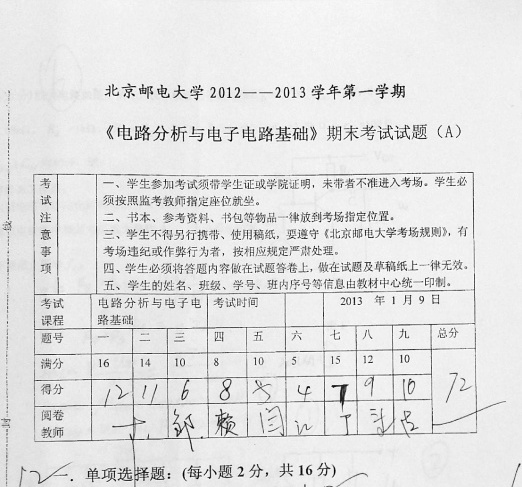 北京邮电大学 2012——2013 学年第一学期
《电路分析与电子电路基础》期末考试试题（A）
考试注意事项
一、学生参加考试须带学生证或学院证明，未带者不准进入考场。学生必
须按照监考教师指定座位就坐。
二、书本、参考资料、书包等物品一律放到考场指定位置。
三、学生不得另行携带、使用稿纸，要遵守《北京邮电大学考场规则》，有
考场违纪或作弊行为者，按相应规定严肃处理。
四、学生必须将答题内容做在试题答卷上，做在试题及草稿纸上一律无效。
五、学生的姓名、班级、学号、班内序号等信息由教材中心统一印制。
考试 电路分析与电子电 考试时间 2013 年 1 月 9 日
课程 路基础
题号 一 二 三 四 五 六 七 八 九 总分
满分 16 14 10 8 10 5 15 12 10
得分 12 11 6 8 4 7 9 10 72
阅卷
教师 邹 赖 闫 江 丁
12 一. 单项选择题：（每小题 2 分，共 16 分）
线
封